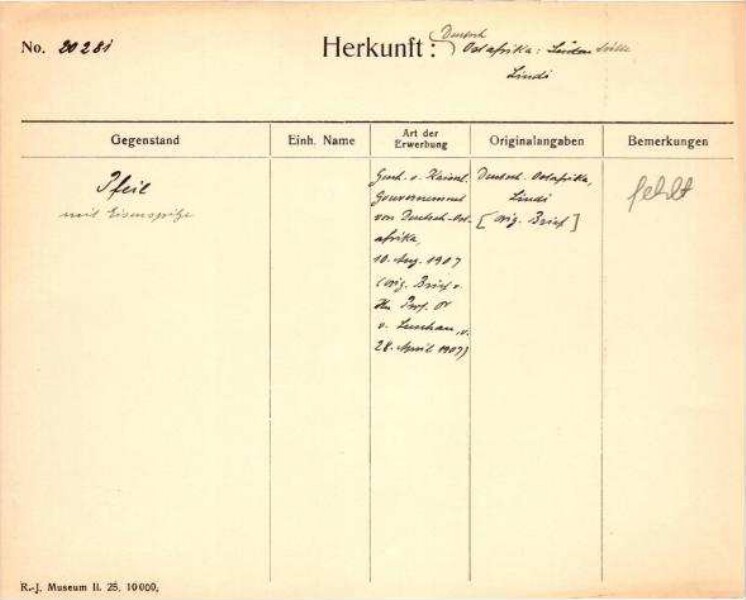 No. 20281
Herkunft: Deutsch
Ostafrika: Süden
Lindi
Gegenstand
Einh. Name
Art der
Erwerbung
Originalangaben
Bemerkungen
Pfeil
mit Eisenspitze
Gesch. v. Kaiserl.
Gouvernement
von Deutsch-Ost-
afrika,
10. Aug. 1907
(orig. Brief v.
Hn Prof. Dr
v. Luschan, v.
28. April 1907)
Deutsch. Ostafrika,
Lindi
[orig. Brief]
fehlt
R.-J. Museum II. 25. 10000.